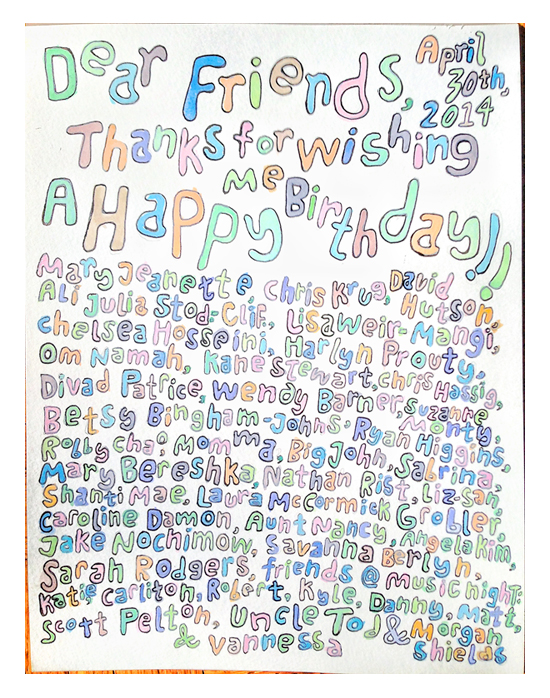 Dear Friends, April 30th, 2014
Thanks for wishing
me
A Happy Birthday!!
Mary Jeanette, Chris Krug, David
Ali Julia Stod-Clif., Lisa Weir-Mangi, Hutson,
Chelsea Hosseini, Harlyn Prouty,
Om Namah, Kane Stewart, Chris Hassig,
Divad Patrice, Wendy Barner, Suzanne
Betsy Bingham-Johns, Ryan Monty,
Robby Chao, Momma, Big John, Higgins,
Mary Bereshka, Nathan Rist, Sabrina,
Shanti Mae, Laura McCormick, Liz-San,
Caroline Damon, Aunt Nancy, Grobler
Jake Nochimow, Savanna Berlyn, Angela Kim,
Sarah Rodgers, friends @ music night:
Katie Carliton, Robert, Kyle, Danny, Matt,
Scott Pelton, Uncle Tod & Morgan
& Vannessa Shields